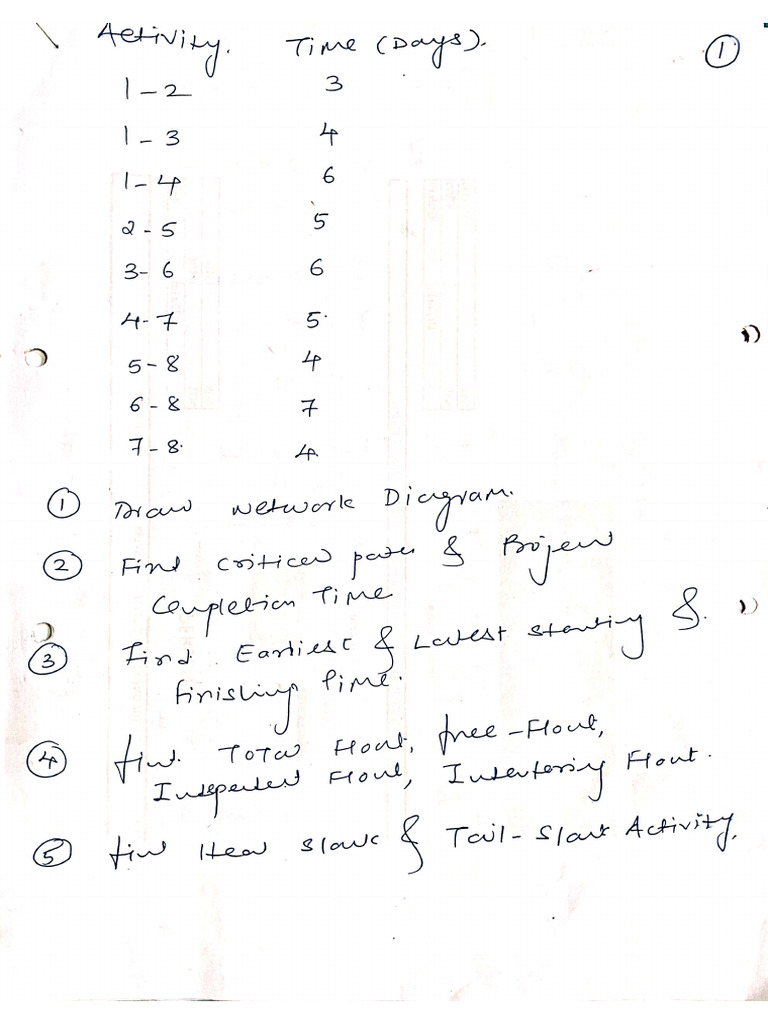 Activity. Time (Days).
①
1-2 3
1-3 4
1-4 6
2-5 5
3-6 6
4-7 5
5-8 4
6-8 7
7-8 4
① Draw Network Diagram.
② Find critical path &
Completion Time
③ Find Earliest & Latest starting &
finishing Time.
④ find Total Float, free-Float,
Independent Float, Interfering Float.
⑤ find Head slack & Tail-Slack Activity.